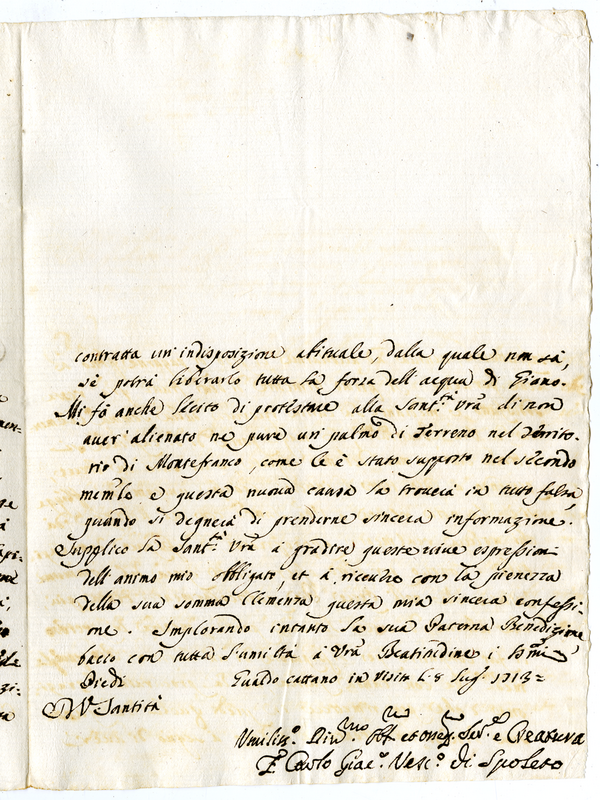 contratta un'indisposizione abituale, dalla quale non sà,
sè potrà liberarlo tutta la forza dell'acqua di Giano.
Mi fò anche lecito di protestare alla Sant.tà Vrã di non
aver'alienato ne pure un palmo di Terreno nel Territo-
rio di Montefranco, come le è stato supposto nel secondo
membro e questa nuova causa la troverà in tutto falsa,
quando si degnerà di prenderne sincera informazione.
Supplico la Sant.tà Vrã à gradire queste vive espressioni
dell'animo mio obbligato, et à ricevere con la pienezza
della sua somma Clemenza questa mia sincera confessi-
one. Implorando intanto la sua Paterna Benedizione,
bacio con tutta l'umiltà à Vrã Beatitudine i SSmi
Piedi Gualdo cattano in Visita li 8 1713
D V Santità
Umiliss.o et Ser.e e Creatura
Carlo Giac.o Vesc.o di Spoleto